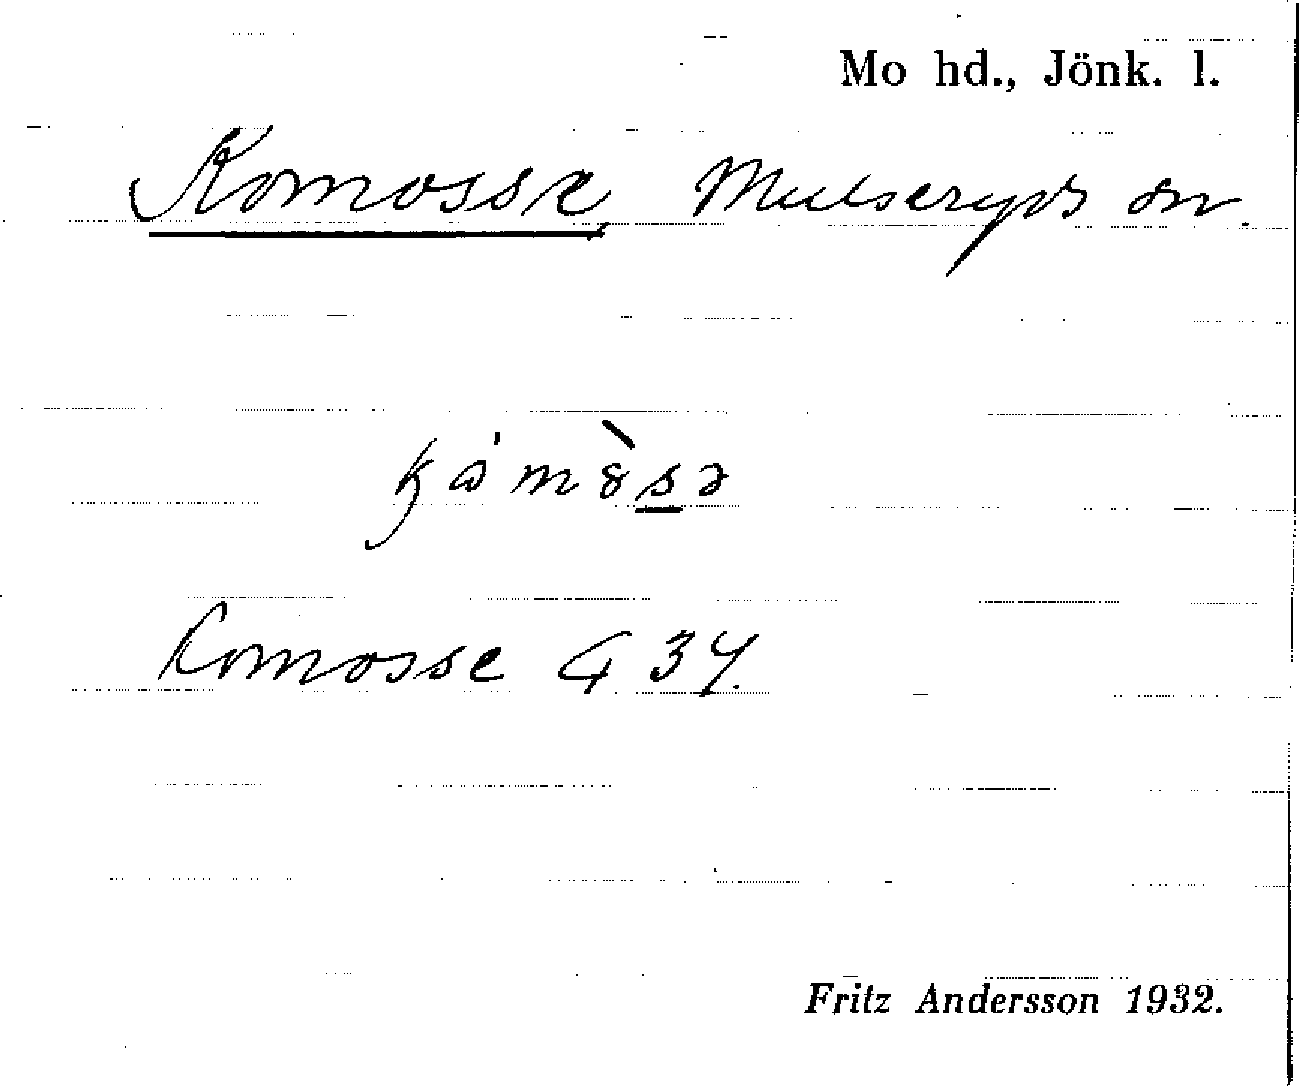 Mo hd., Jönk. l.
Komosse Mulseryds sn.
Komosse G 37.
Fritz Andersson 1932.